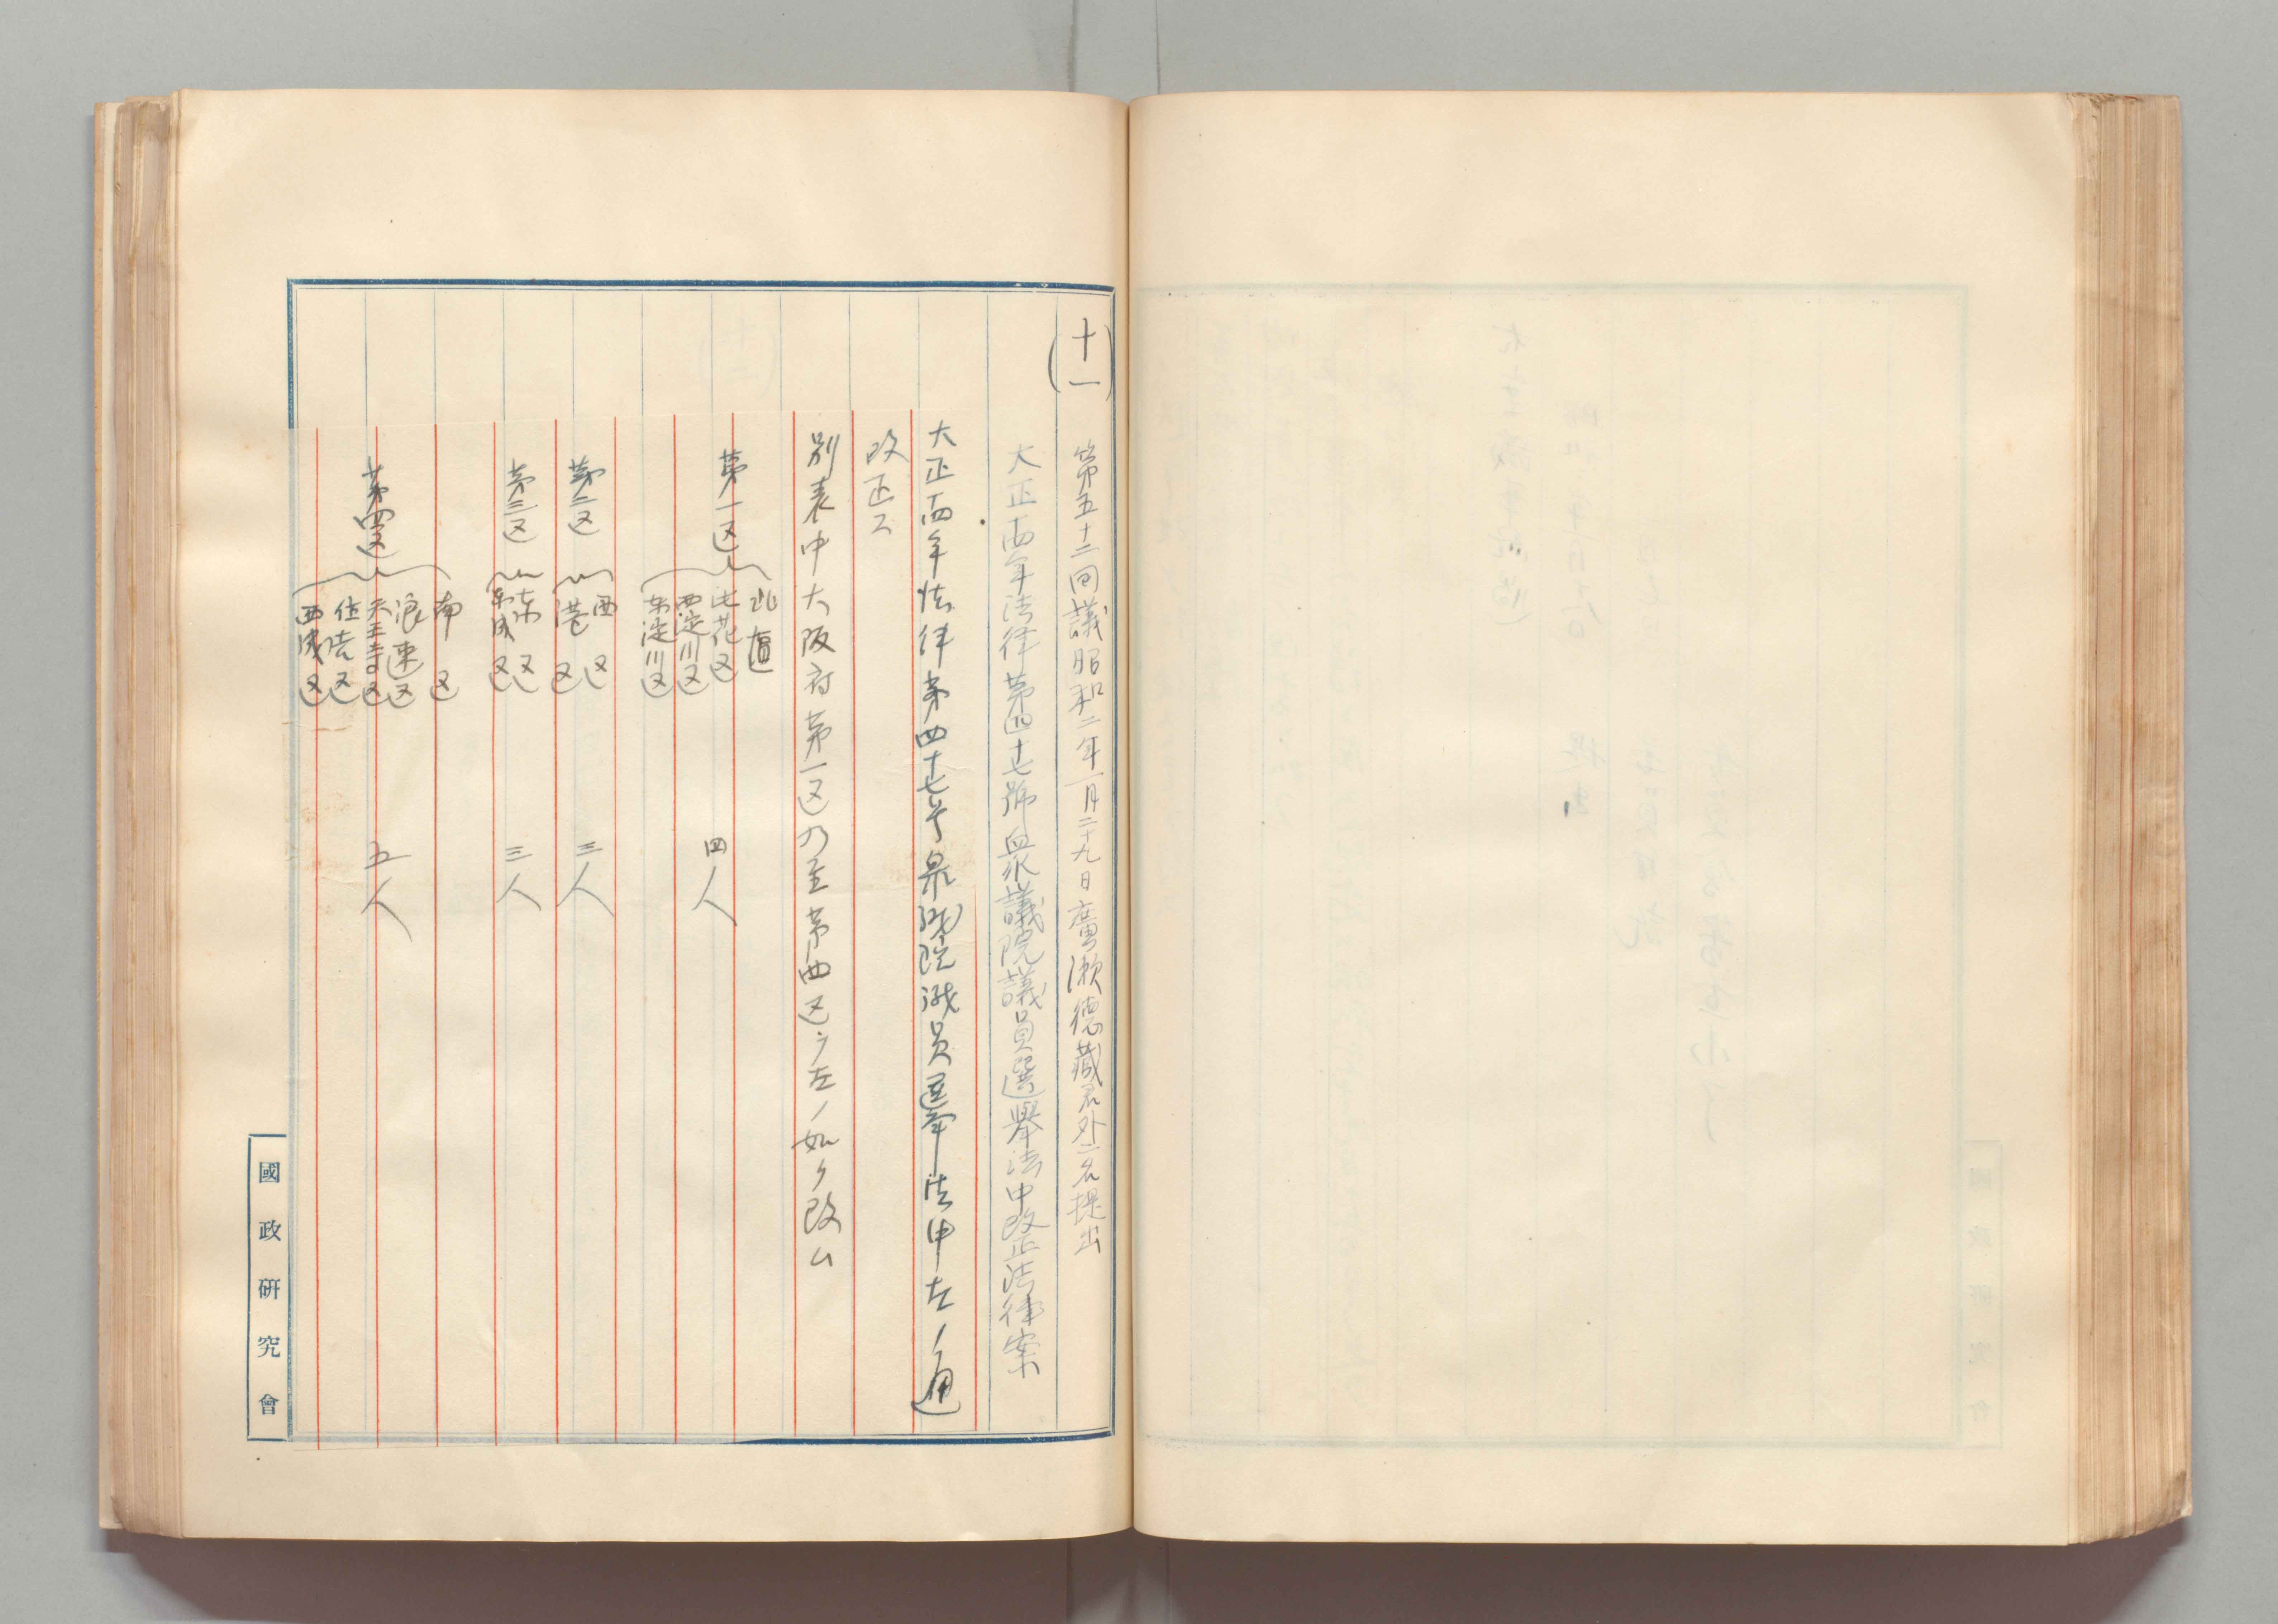 (十一)
第五十二回議昭和二年一月二十九日廣瀬德藏君外一名提出
大正十四年法律第四十七號衆議院議員選擧法中改正法律案
大正十四年法律第四十七号衆議院議員選挙法中左ノ通
改正ス
別表中大阪府第一区乃至第四区ヲ左ノ如ク改ム
第一区
北區
此花区
西淀川区
東淀川区
四人
第二区
西区
港区
三人
第三区
東区
東成区
三人
第四区
南区
浪速区
天王寺区
住吉区
西成区
五人
國政研究會